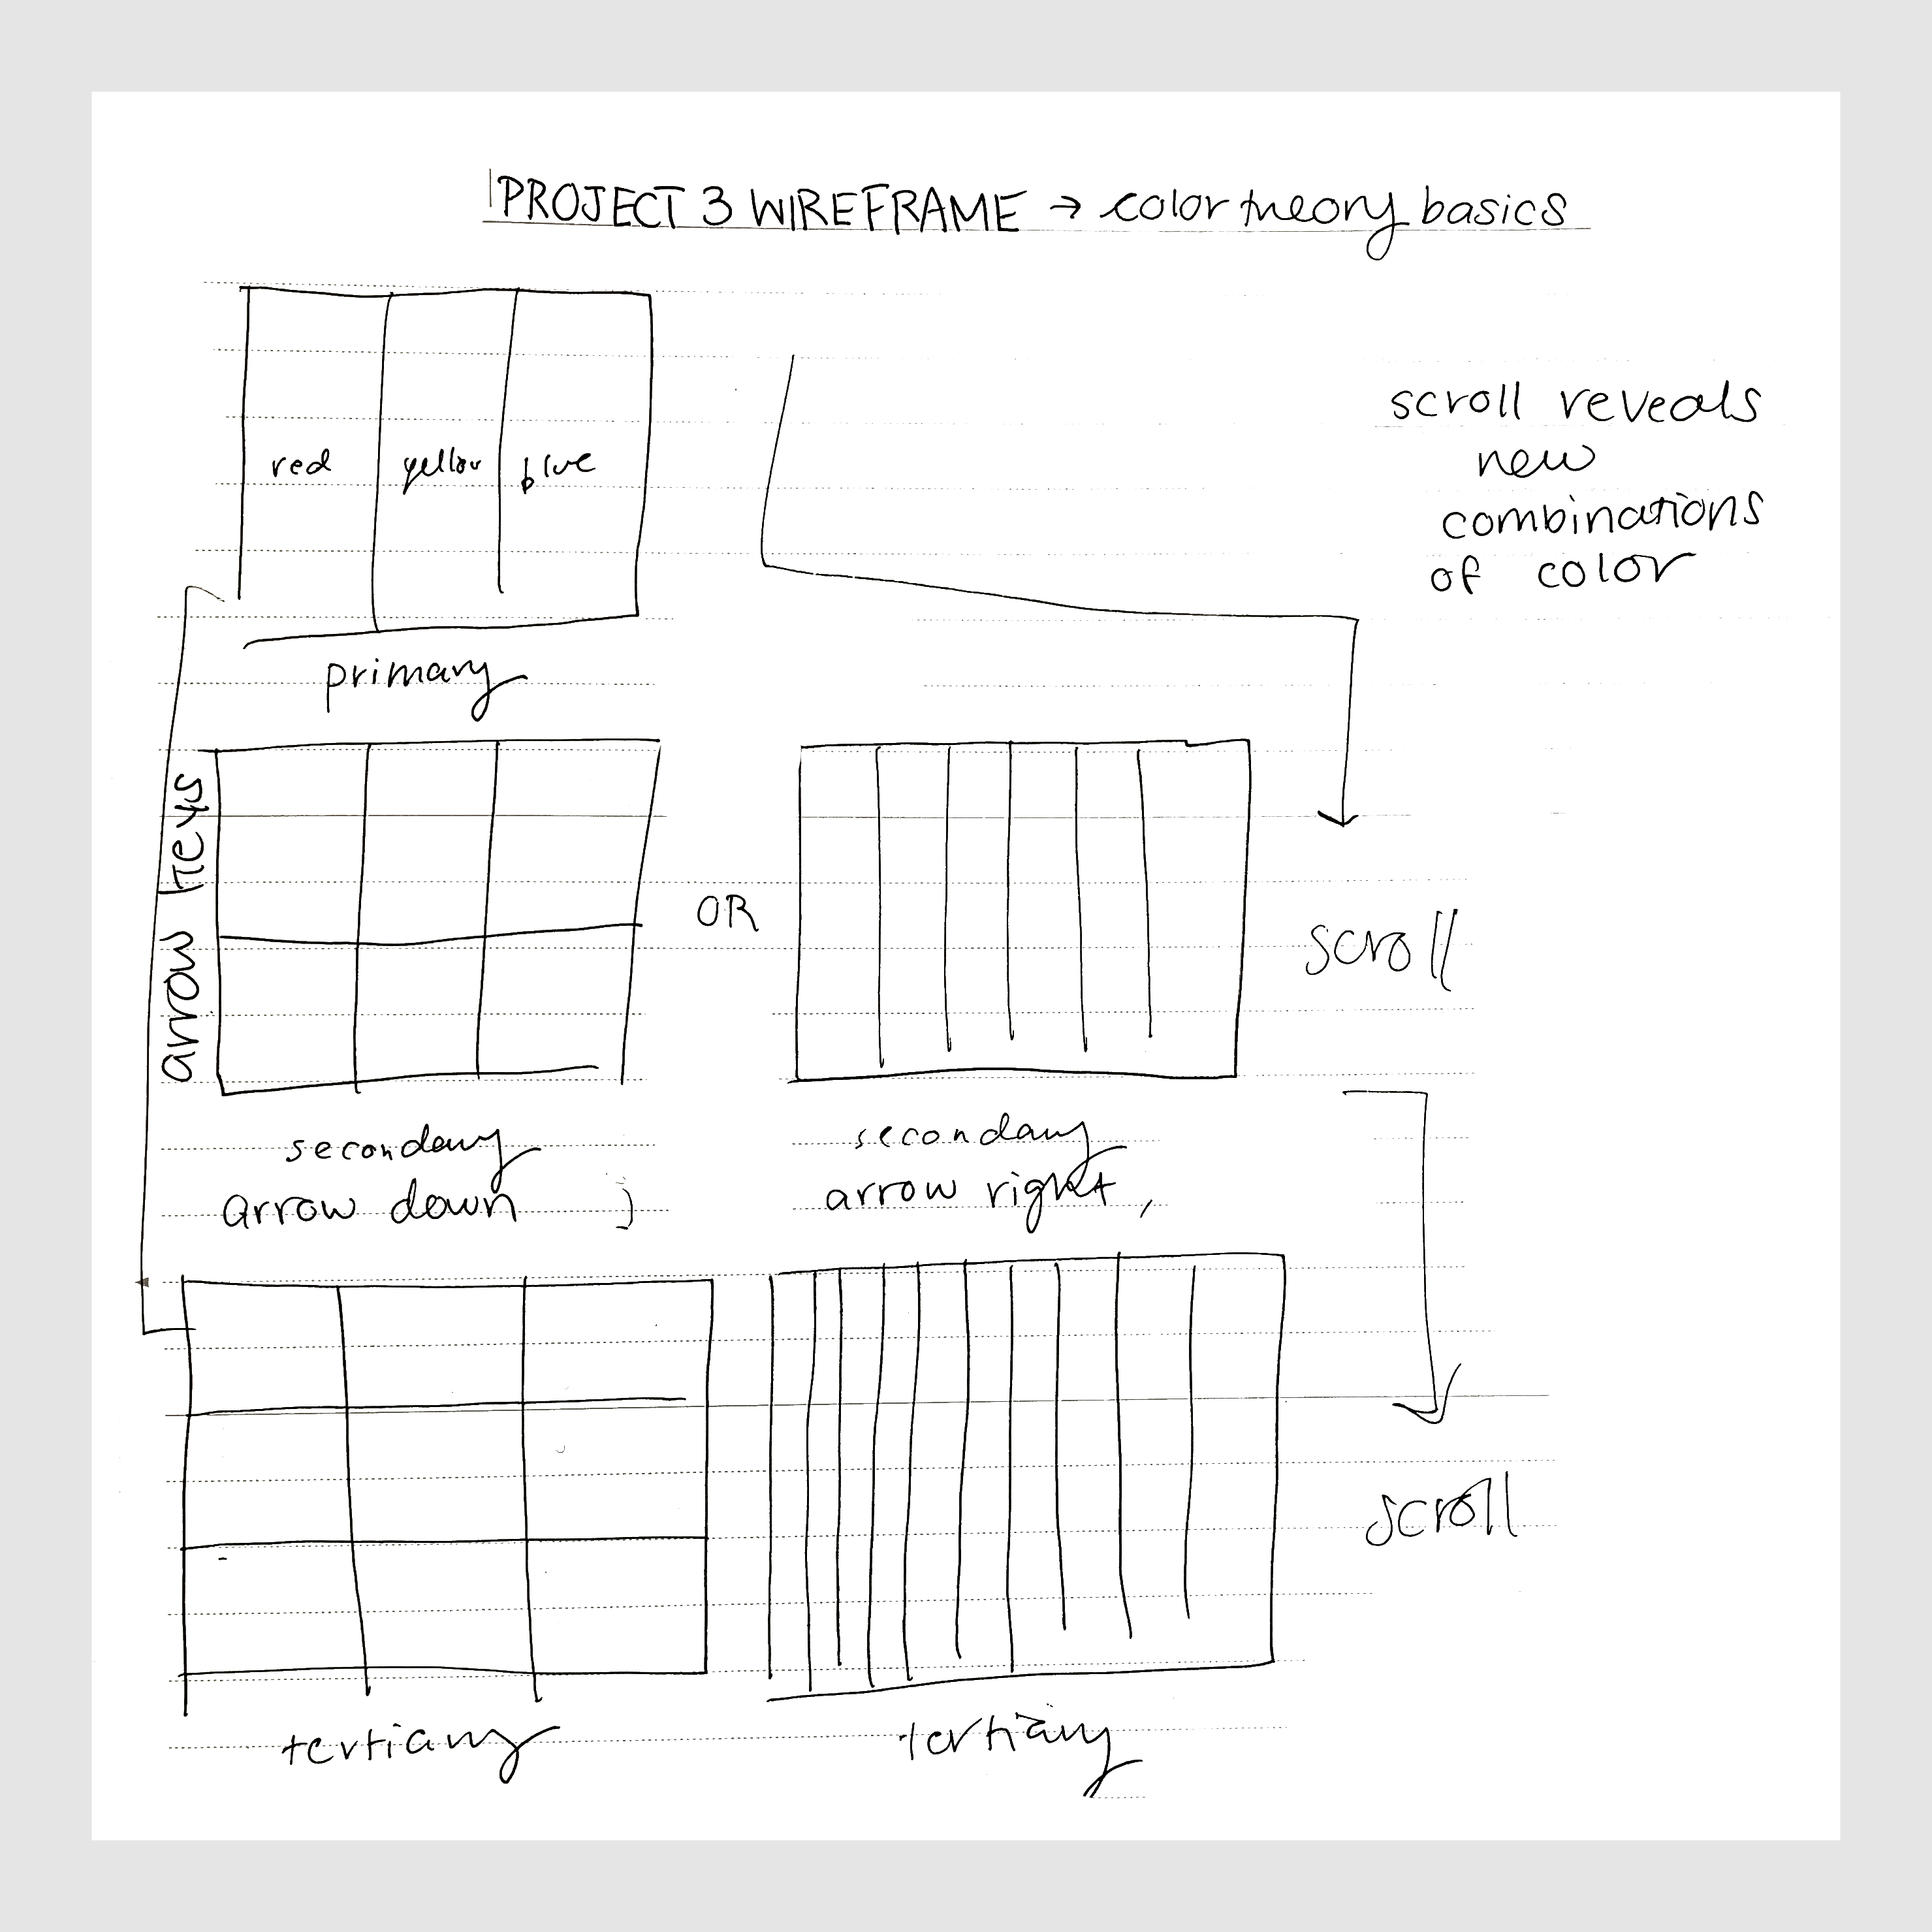 PROJECT 3 WIREFRAME → color theory basics
red yellow blue
scroll reveals
new
combinations
of color
primary
arrow keys
OR
scroll
secondary
arrow down
secondary
arrow right,
scroll
tertiary
tertiary